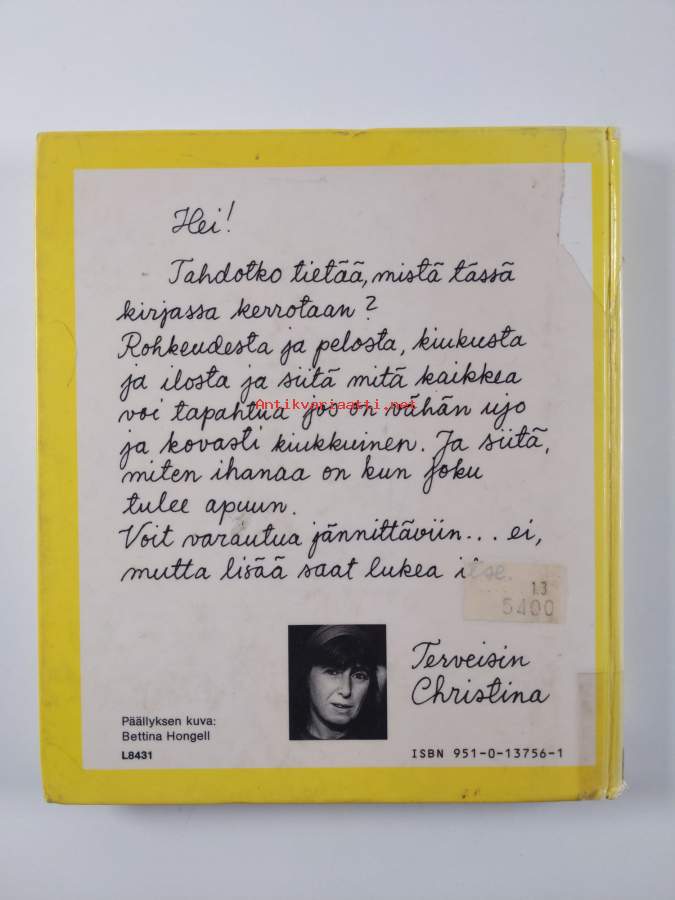 Hei!
Tahdotko tietää, mistä tässä
kirjassa kerrotaan?
Rohkeudesta ja pelosta, kiukusta
ja ilosta ja siitä mitä kaikkea
voi tapahtua jos on vähän ujo
Antikvariaatti.net
ja kovasti kiukkuinen. Ja siitä,
miten ihanaa on kun joku
tulee apuun.
Voit varautua jännittäviin... ei,
mutta lisää saat lukea itse.
13
5400
Terveisin
Christina
Päällyksen kuva:
Bettina Hongell
L8431
ISBN 951-0-13756-1